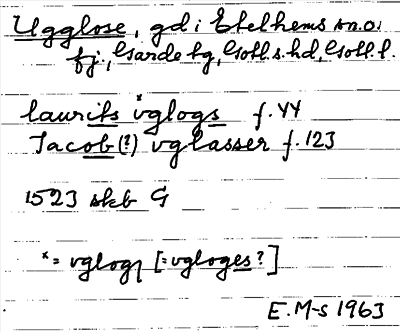 Ugglose, gd i Etelhems sn. o.
fj., Garde tg, Gotl. s. hd, Gotl. l.
laurits *vglogs f. 44
Jacob (?) vglasser f. 123
1523 skb G
*= vglogɿ [= vgloges?]
E. M-s 1963